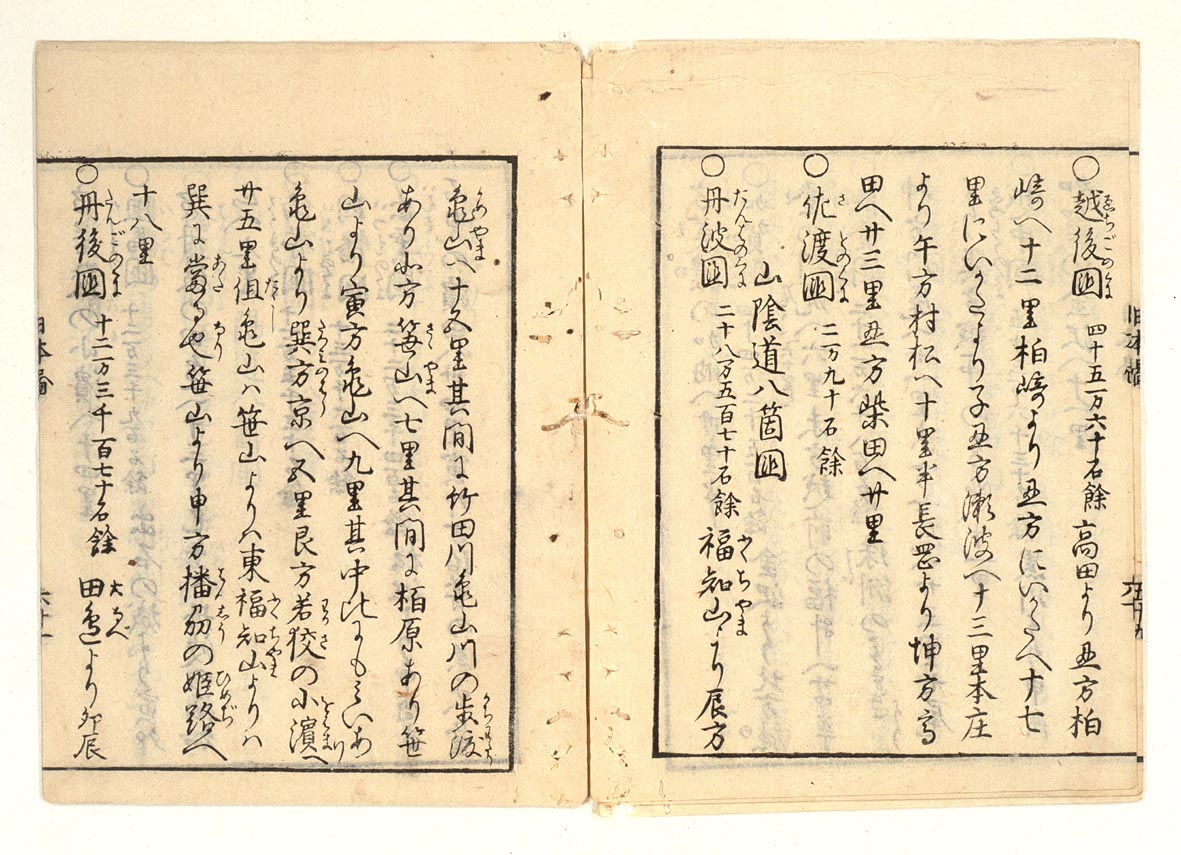 ○越後国 四十五万六十石餘 高田より丑方柏
崎へ十二里柏崎より丑方にいがたへ十七
里にいがたより子丑方瀬波へ十三里本庄
より午方村松へ十里半長岡より坤方高
田へ廿三里丑方柴田へ廿里
○佐渡国 二万九十石餘
山陰道八箇国
○丹波国 二十八万五百七十石餘 福知山より辰方
亀山へ十五里其間に竹田川亀山川の歩渡
あり北方笹山へ七里其間に柏原あり笹
山より寅方亀山へ九里其中にも
亀山より巽方京へ五里艮方若狭の小濱へ
廿五里但亀山ハ笹山よりハ東福知山よりハ
巽に當る也笹山より申方播州の姫路へ
十八里
○丹後国 十二万三千百七十石餘 田邊より卯辰